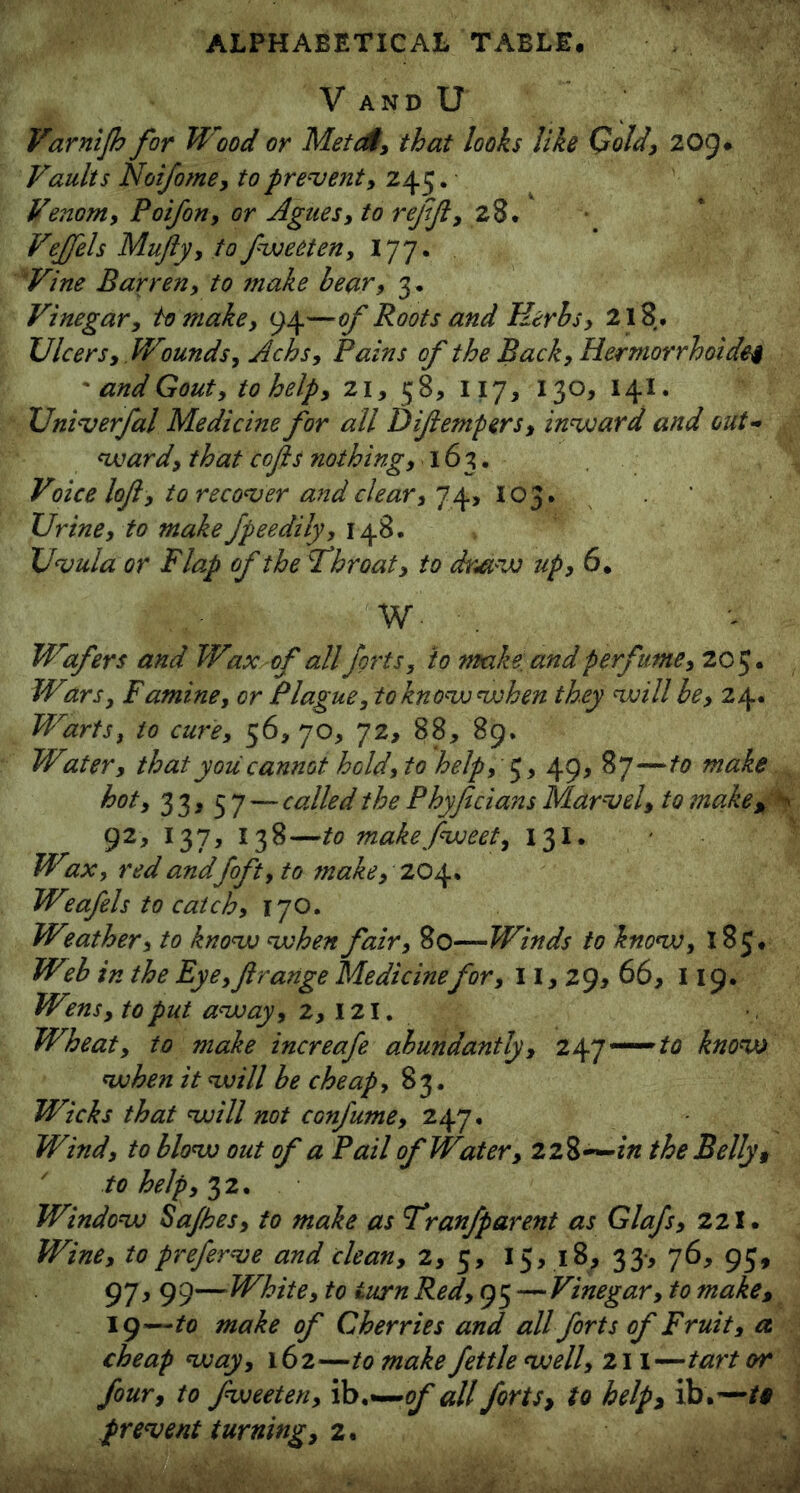 ALPHABETICAL TABLE.
V AND U
Varniſh for Wood or Metal, that looks like Gold, 209.
Vaults Noiſome, to prevent, 245.
Venom, Poiſon, or Agues, to reſiſt, 28.
Veſſels Muſty, to ſweeten, 177.
Vine Barren, to make bear, 3.
Vinegar, to make, 94—of Roots and Herbs, 218.
Ulcers, Wounds, Achs, Pains of the Back, Hermorrhoides
and Gout, to help, 21, 58, 117, 130, 141.
Univerſal Medicine for all Diſtempers, inward and out-
ward, that coſts nothing, 163.
Voice loſt, to recover and clear, 74, 103.
Urine, to make ſpeedily, 148.
Uvula or Flap of the Throat, to draw up, 6.
W
Wafers and Wax of all ſorts, to make and perfume, 205.
Wars, Famine, or Plague, to know when they will be, 24.
Warts, to cure, 56, 70, 72, 88, 89.
Water, that you cannot hold, to help, 5, 49, 87—to make
hot, 33, 57—called the Phyſicians Marvel, to make,
92, 137, 138—to make ſweet, 131.
Wax, red and ſoft, to make, 204.
Weaſels to catch, 170.
Weather, to know when fair, 80—Winds to know, 185.
Web in the Eye, ſtrange Medicine for, 11, 29, 66, 119.
Wens, to put away, 2, 121.
Wheat, to make increaſe abundantly, 247—to know
when it will be cheap, 83.
Wicks that will not conſume, 247.
Wind, to blow out of a Pail of Water, 228—in the Belly,
to help, 32.
Window Saſhes, to make as Tranſparent as Glaſs, 221.
Wine, to preſerve and clean, 2, 5, 15, 18, 33, 76, 95,
97, 99—White, to turn Red, 95—Vinegar, to make,
19—to make of Cherries and all ſorts of Fruit, a
cheap way, 162—to make ſettle well, 211—tart or
ſour, to ſweeten, ib.—of all ſorts, to help, ib.—to
prevent turning, 2.